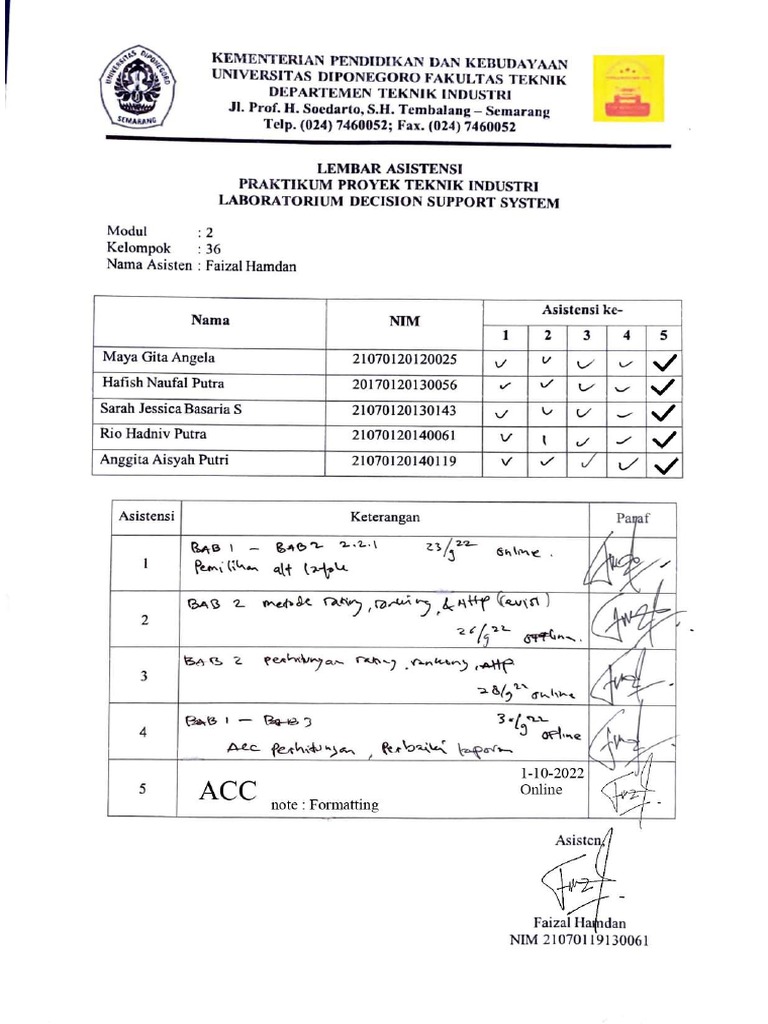 UNIVERSITAS DIPONEGORO
SEMARANG
KEMENTERIAN PENDIDIKAN DAN KEBUDAYAAN
UNIVERSITAS DIPONEGORO FAKULTAS TEKNIK
DEPARTEMEN TEKNIK INDUSTRI
Jl. Prof. H. Soedarto, S.H. Tembalang – Semarang
Telp. (024) 7460052; Fax. (024) 7460052
LEMBAR ASISTENSI
PRAKTIKUM PROYEK TEKNIK INDUSTRI
LABORATORIUM DECISION SUPPORT SYSTEM
Modul : 2
Kelompok : 36
Nama Asisten : Faizal Hamdan
Nama NIM Asistensi ke-
1 2 3 4 5
Maya Gita Angela 21070120120025 ✓ ✓ ✓ ✓ ✓
Hafish Naufal Putra 20170120130056 ✓ ✓ ✓ ✓ ✓
Sarah Jessica Basaria S 21070120130143 ✓ ✓ ✓ ✓ ✓
Rio Hadniv Putra 21070120140061 ✓ ✓ ✓ ✓
Anggita Aisyah Putri 21070120140119 ✓ ✓ ✓ ✓ ✓
Asistensi Keterangan Paraf
1 BAB 1 – BAB 2 2.2.1 23/9 22 online.
Pemilihan alt
2 BAB 2 metode rating, ranking, & AHP (revisi)
26/9 22 offline.
3 BAB 2 perhitungan rating, ranking, AHP
28/9 22 online
4 BAB 1 – BAB 3 30/9 22
offline
Acc perhitungan, Perbaiki laporan
5 ACC 1-10-2022
Online
note : Formatting
Asisten,
Faizal Hamdan
NIM 21070119130061